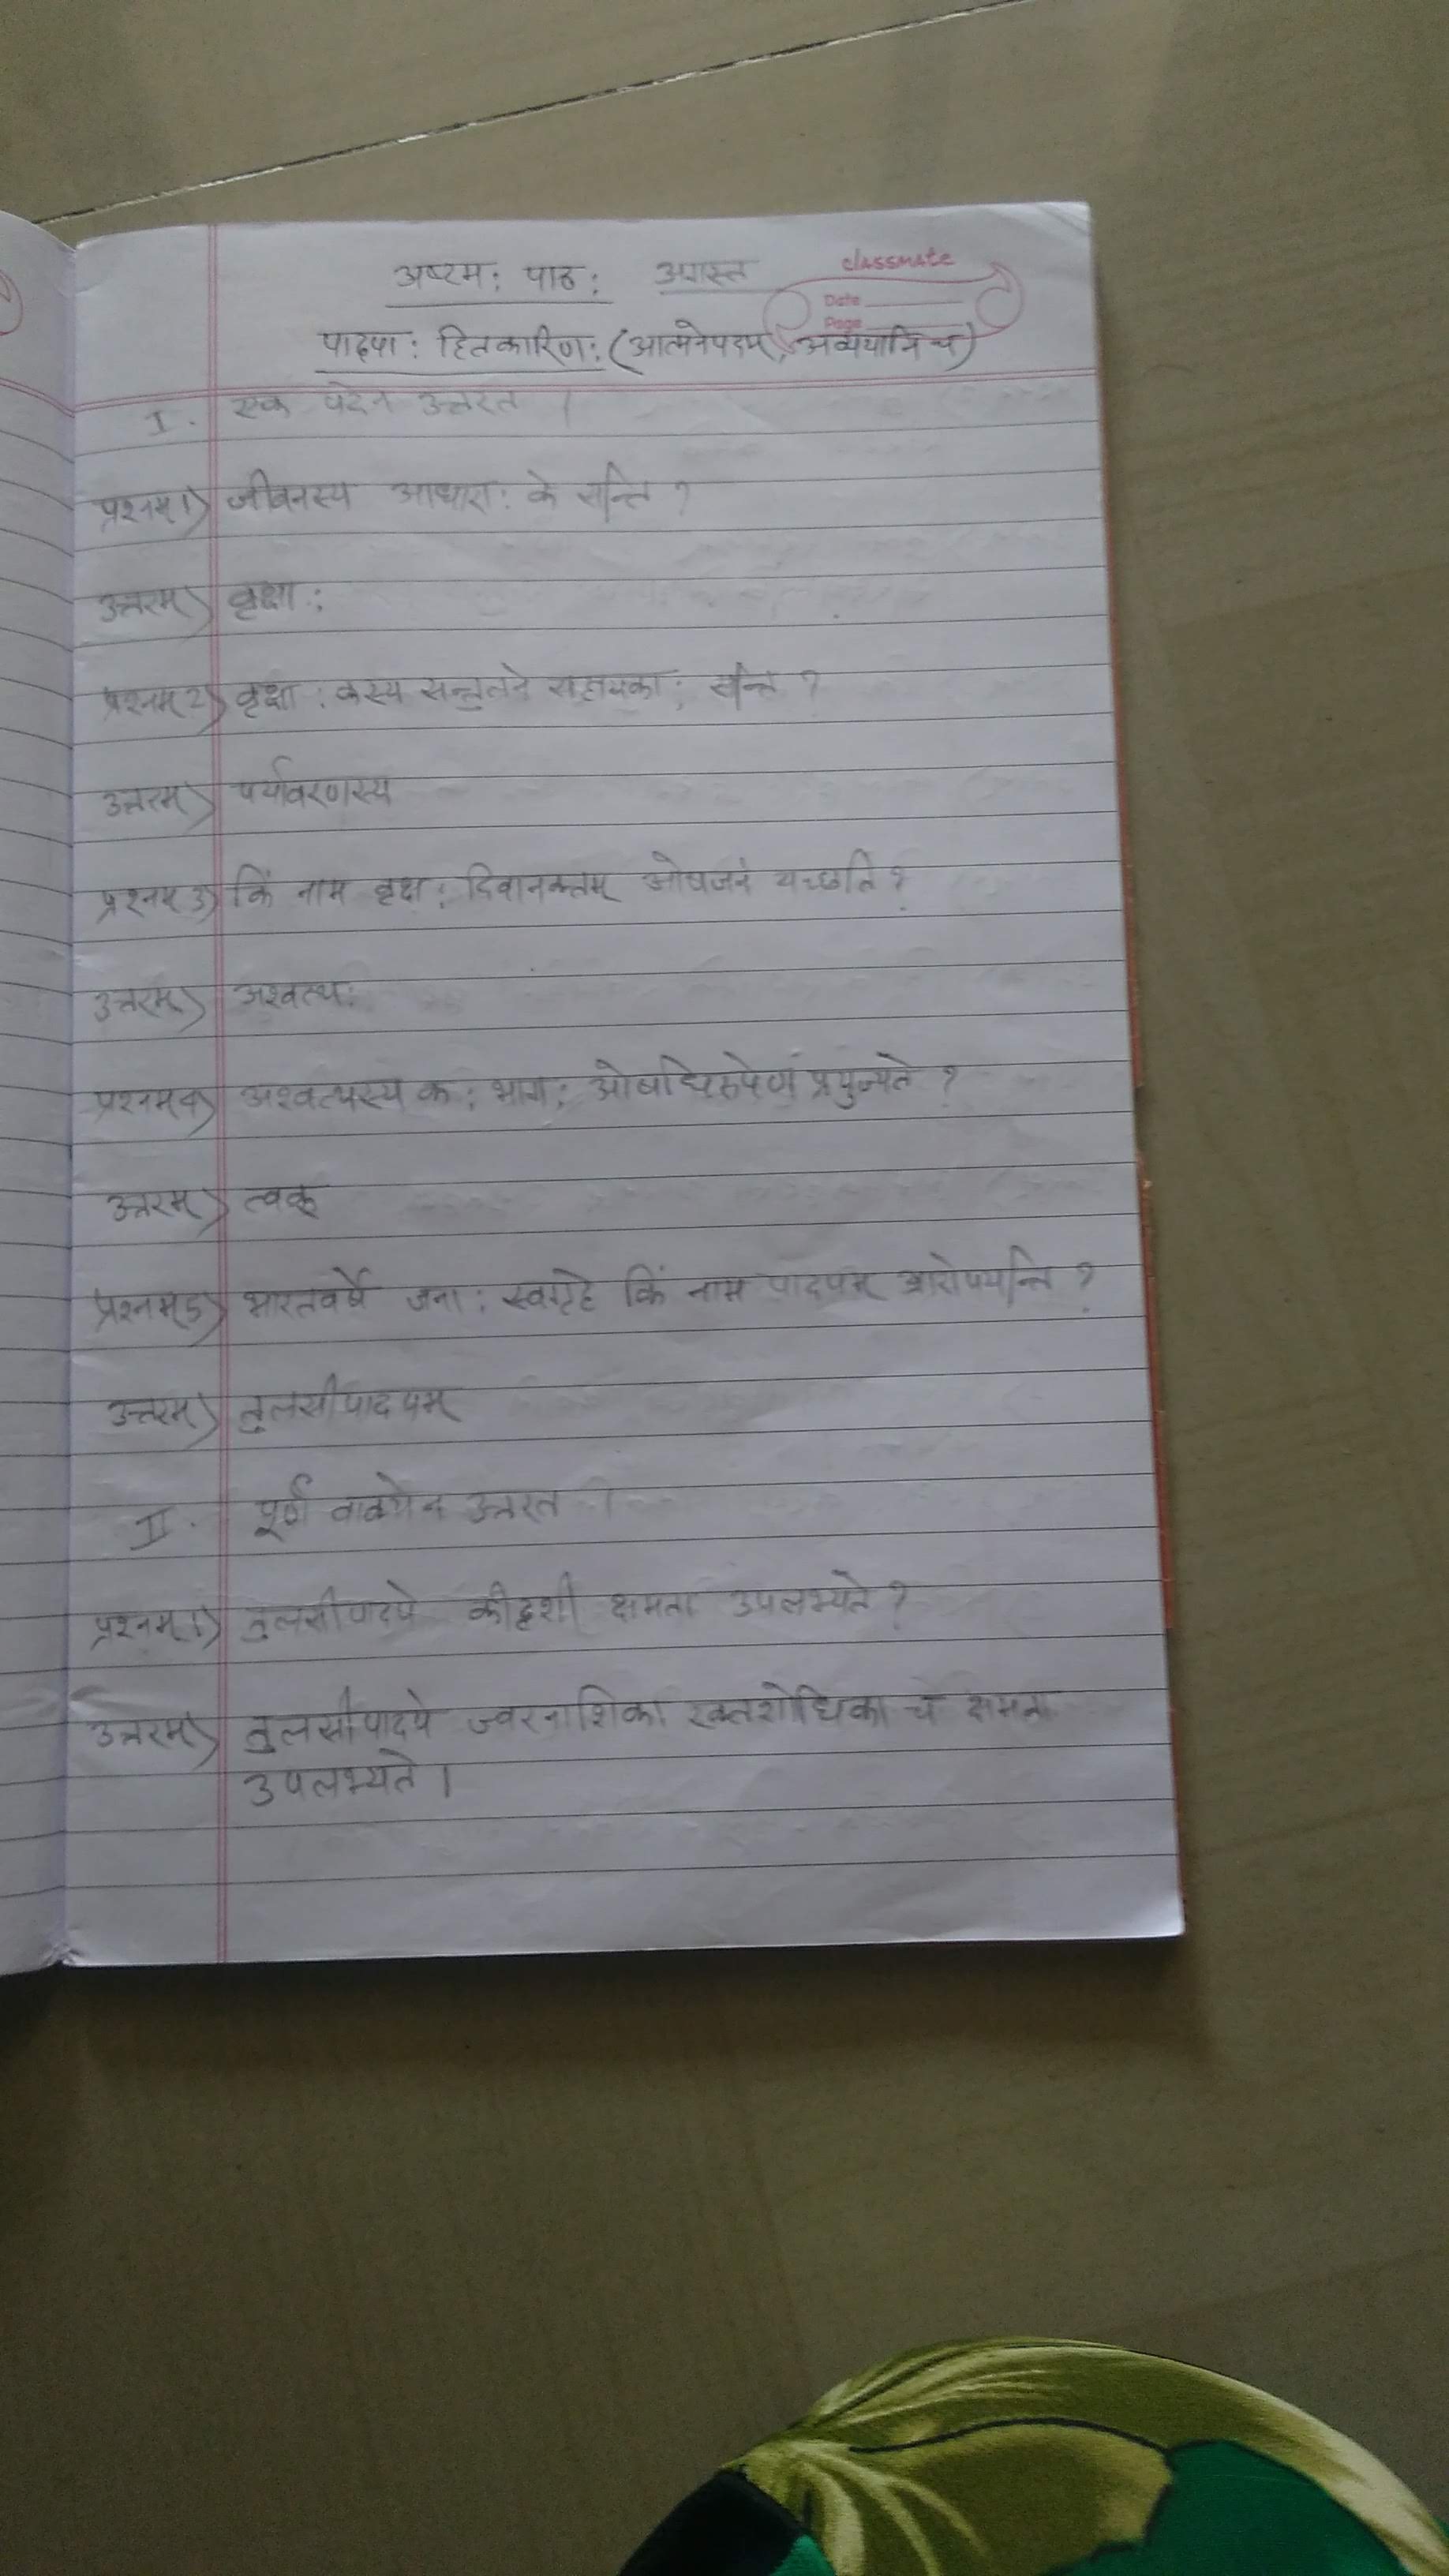 अष्टम: पाठ: अगस्त
classmate
Date
Page
पादपा: हितकारिण: (आत्मनेपदम्, अव्ययानि च)
I. एक पदेन उत्तरत ।
प्रश्नम् 1) जीवनस्य आधारा: के सन्ति ?
उत्तरम्) वृक्षा:
प्रश्नम् 2) वृक्षा: कस्य सन्तुलने सहायका: सन्ति ?
उत्तरम्) पर्यावरणस्य
प्रश्नम् 3) किं नाम वृक्ष: दिवानक्तम् ओषजनं यच्छति ?
उत्तरम्) अश्वत्थ:
प्रश्नम् 4) अश्वत्थस्य क: भाग: ओषधिरुपेण प्रयुज्यते ?
उत्तरम्) त्वक्
प्रश्नम् 5) भारतवर्षे जना: स्वगृहे किं नाम पादपम् आरोपयन्ति ?
उत्तरम्) तुलसीपादपम्
II. पूर्ण वाक्येन उत्तरत ।
प्रश्नम् 1) तुलसीपादपे कीदृशी क्षमता उपलभ्यते ?
उत्तरम्) तुलसीपादपे ज्वरनाशिका रक्तशोधिका च क्षमता
उपलभ्यते ।